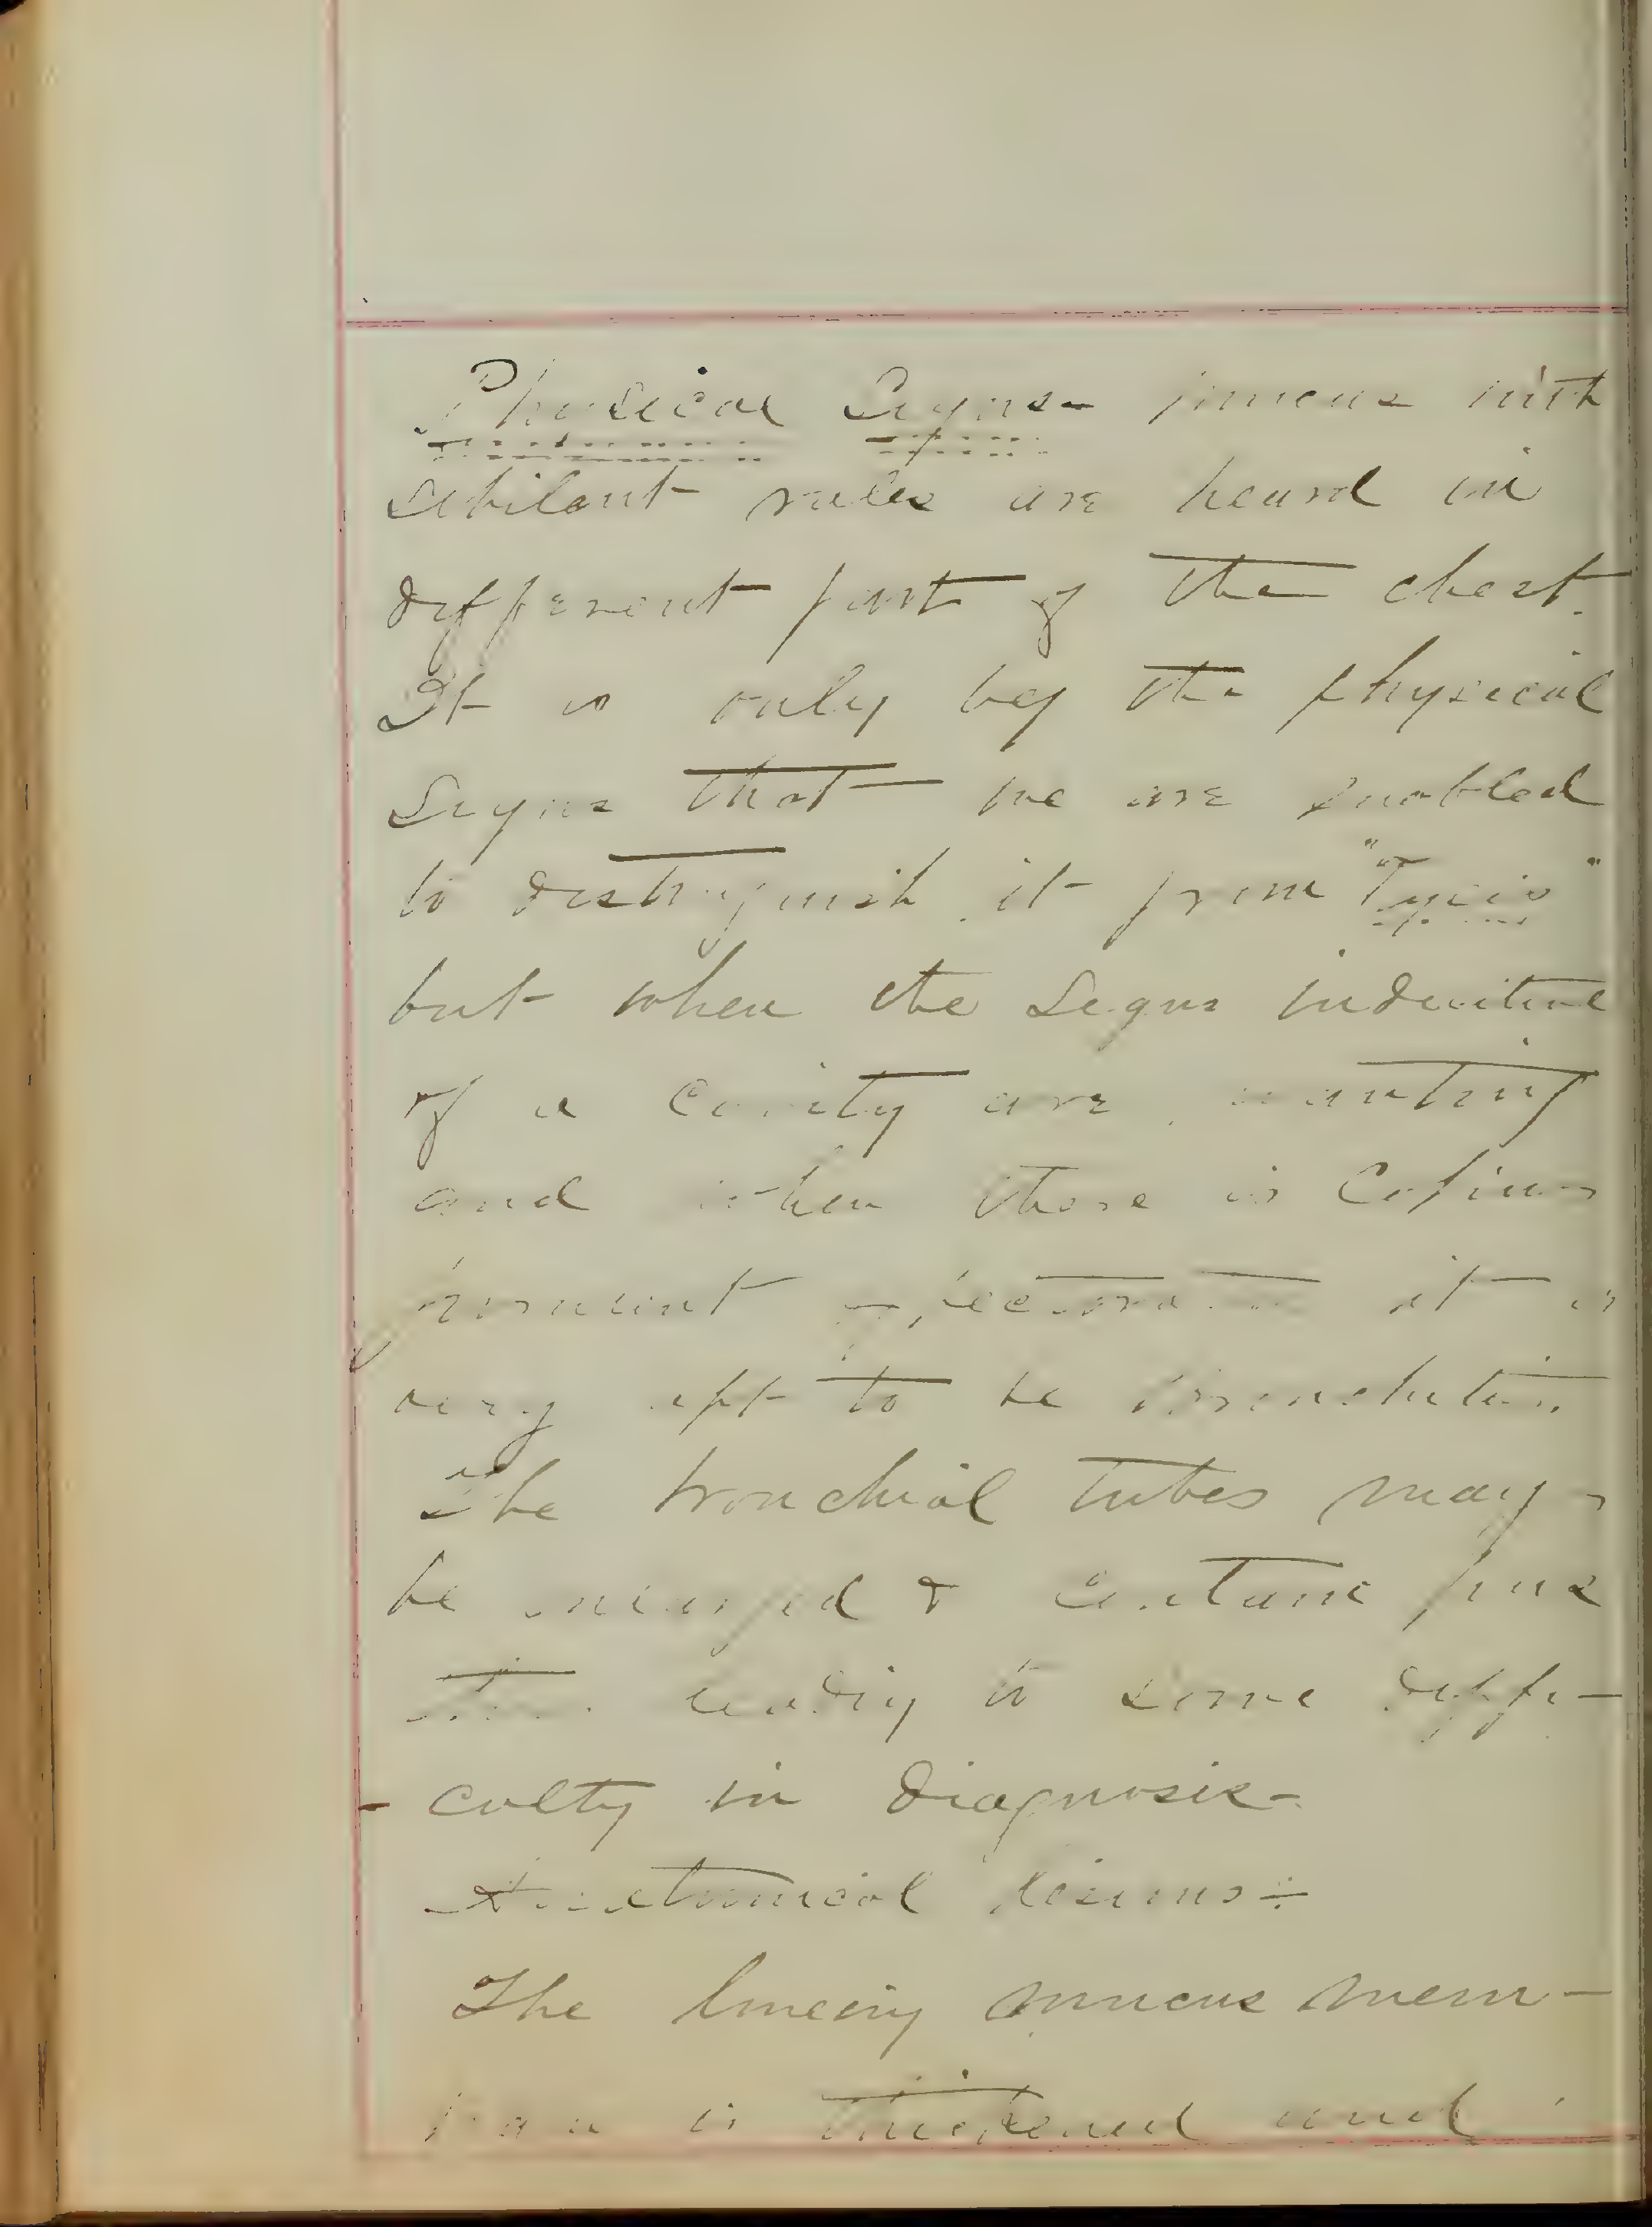 Physical Signs- mucus with
Sibilant rales are heard in
different part of the chest.
It is only by the physical
Signs that we are enabled
to distinguish it from "Tysis"
but when the Signs indicative
of a Cavity are wanting
and when there is Copiu-
it is
very apt to be bronchitis.
The bronchial tubes may
be enlarged & Contain pus
leading to some diffi-
-culty in diagnosis-
Anatomical lesions÷
The lineing mucus mem-
is thickened and